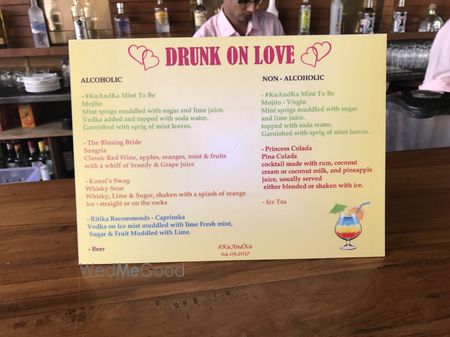 DRUNK ON LOVE
ALCOHOLIC
- #KuAndKa Mint To Be
Mojito
Mint sprigs muddled with sugar and lime juice.
Vodka added and topped with soda water.
Garnished with sprig of mint leaves.
- The Blusing Bride
Sangria
Classic Red Wine, apples, oranges, mint & fruits
with a whiff of brandy & Grape juice
- Kunal's Swag
Whisky Sour
Whisky, Lime & Sugar, shaken with a splash of orange
ice - straight or on the rocks
- Ritika Recommends - Caprioska
Vodka on Ice mist muddled with lime Fresh mint,
Sugar & Fruit Muddled with Lime.
- Beer
NON - ALCOHOLIC
- #KuAndKa Mint To Be
Mojito - Virgin
Mint sprigs muddled with sugar
and lime juice.
topped with soda water.
Garnished with sprig of mint leaves.
- Princess Colada
Pina Colada
cocktail made with rum, coconut
cream or coconut milk, and pineapple
juice, usually served
either blended or shaken with ice.
- Ice Tea
#KuAndKa
04.05.2017
WedMeGood